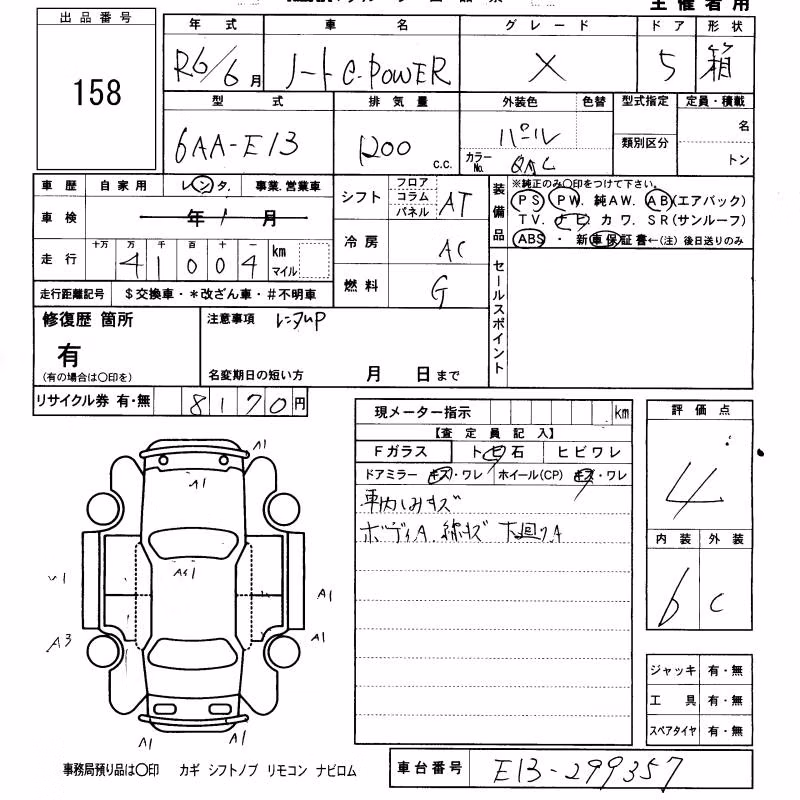 主催者用
出品番号
158
年式 車名 グレード ドア 形状
R6/6月 ノート e-POWER X 5 箱
型式 排気量 外装色 色替 型式指定 定員・積載
6AA-E13 1200 c.c. パール カラーNo. QAC 類別区分 名 トン
車歴 自家用 レンタ. 事業.営業車
車検 年 月
走行 十万 万 千 百 十 一 km マイル
4 1 0 0 4
走行距離記号 $交換車・*改ざん車・#不明車
シフト フロア コラム パネル AT
冷房 AC
燃料 G
装備品 ※純正のみ〇印をつけて下さい。
PS PW. 純AW. AB(エアバック)
TV. ナビ. カワ. SR(サンルーフ)
ABS ・ 新車保証書←(注) 後日送りのみ
セールスポイント
修復歴 箇所
有
(有の場合は〇印を)
注意事項 レンタUP
名変期日の短い方 月 日まで
リサイクル券 有・無 8170円
現メーター指示 km
【査定員記入】
Fガラス トビ石 ヒビワレ
ドアミラー キズ・ワレ ホイール(CP) キズ・ワレ
車内しみキズ
ボディA 線キズ 下廻りA
評価点
4
内装 外装
b C
ジャッキ 有・無
工具 有・無
スペアタイヤ 有・無
A1
A1
A1
A1
A3
A1
A1
A1
事務局預り品は〇印 カギ シフトノブ リモコン ナビロム
車台番号 E13-299357